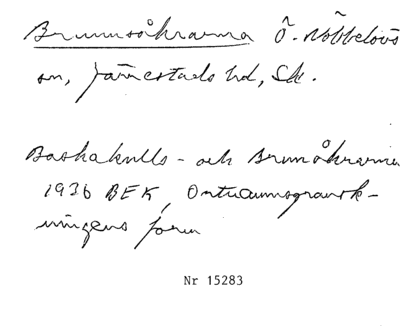 Brunnsåkrarna Ö. Nöbbelövs
sn, Järrestads hd, Sk.
Baskakulls- och Brunåkrarna
1936 BEK, Ortnamnsgransk-
ningens form
Nr 15283